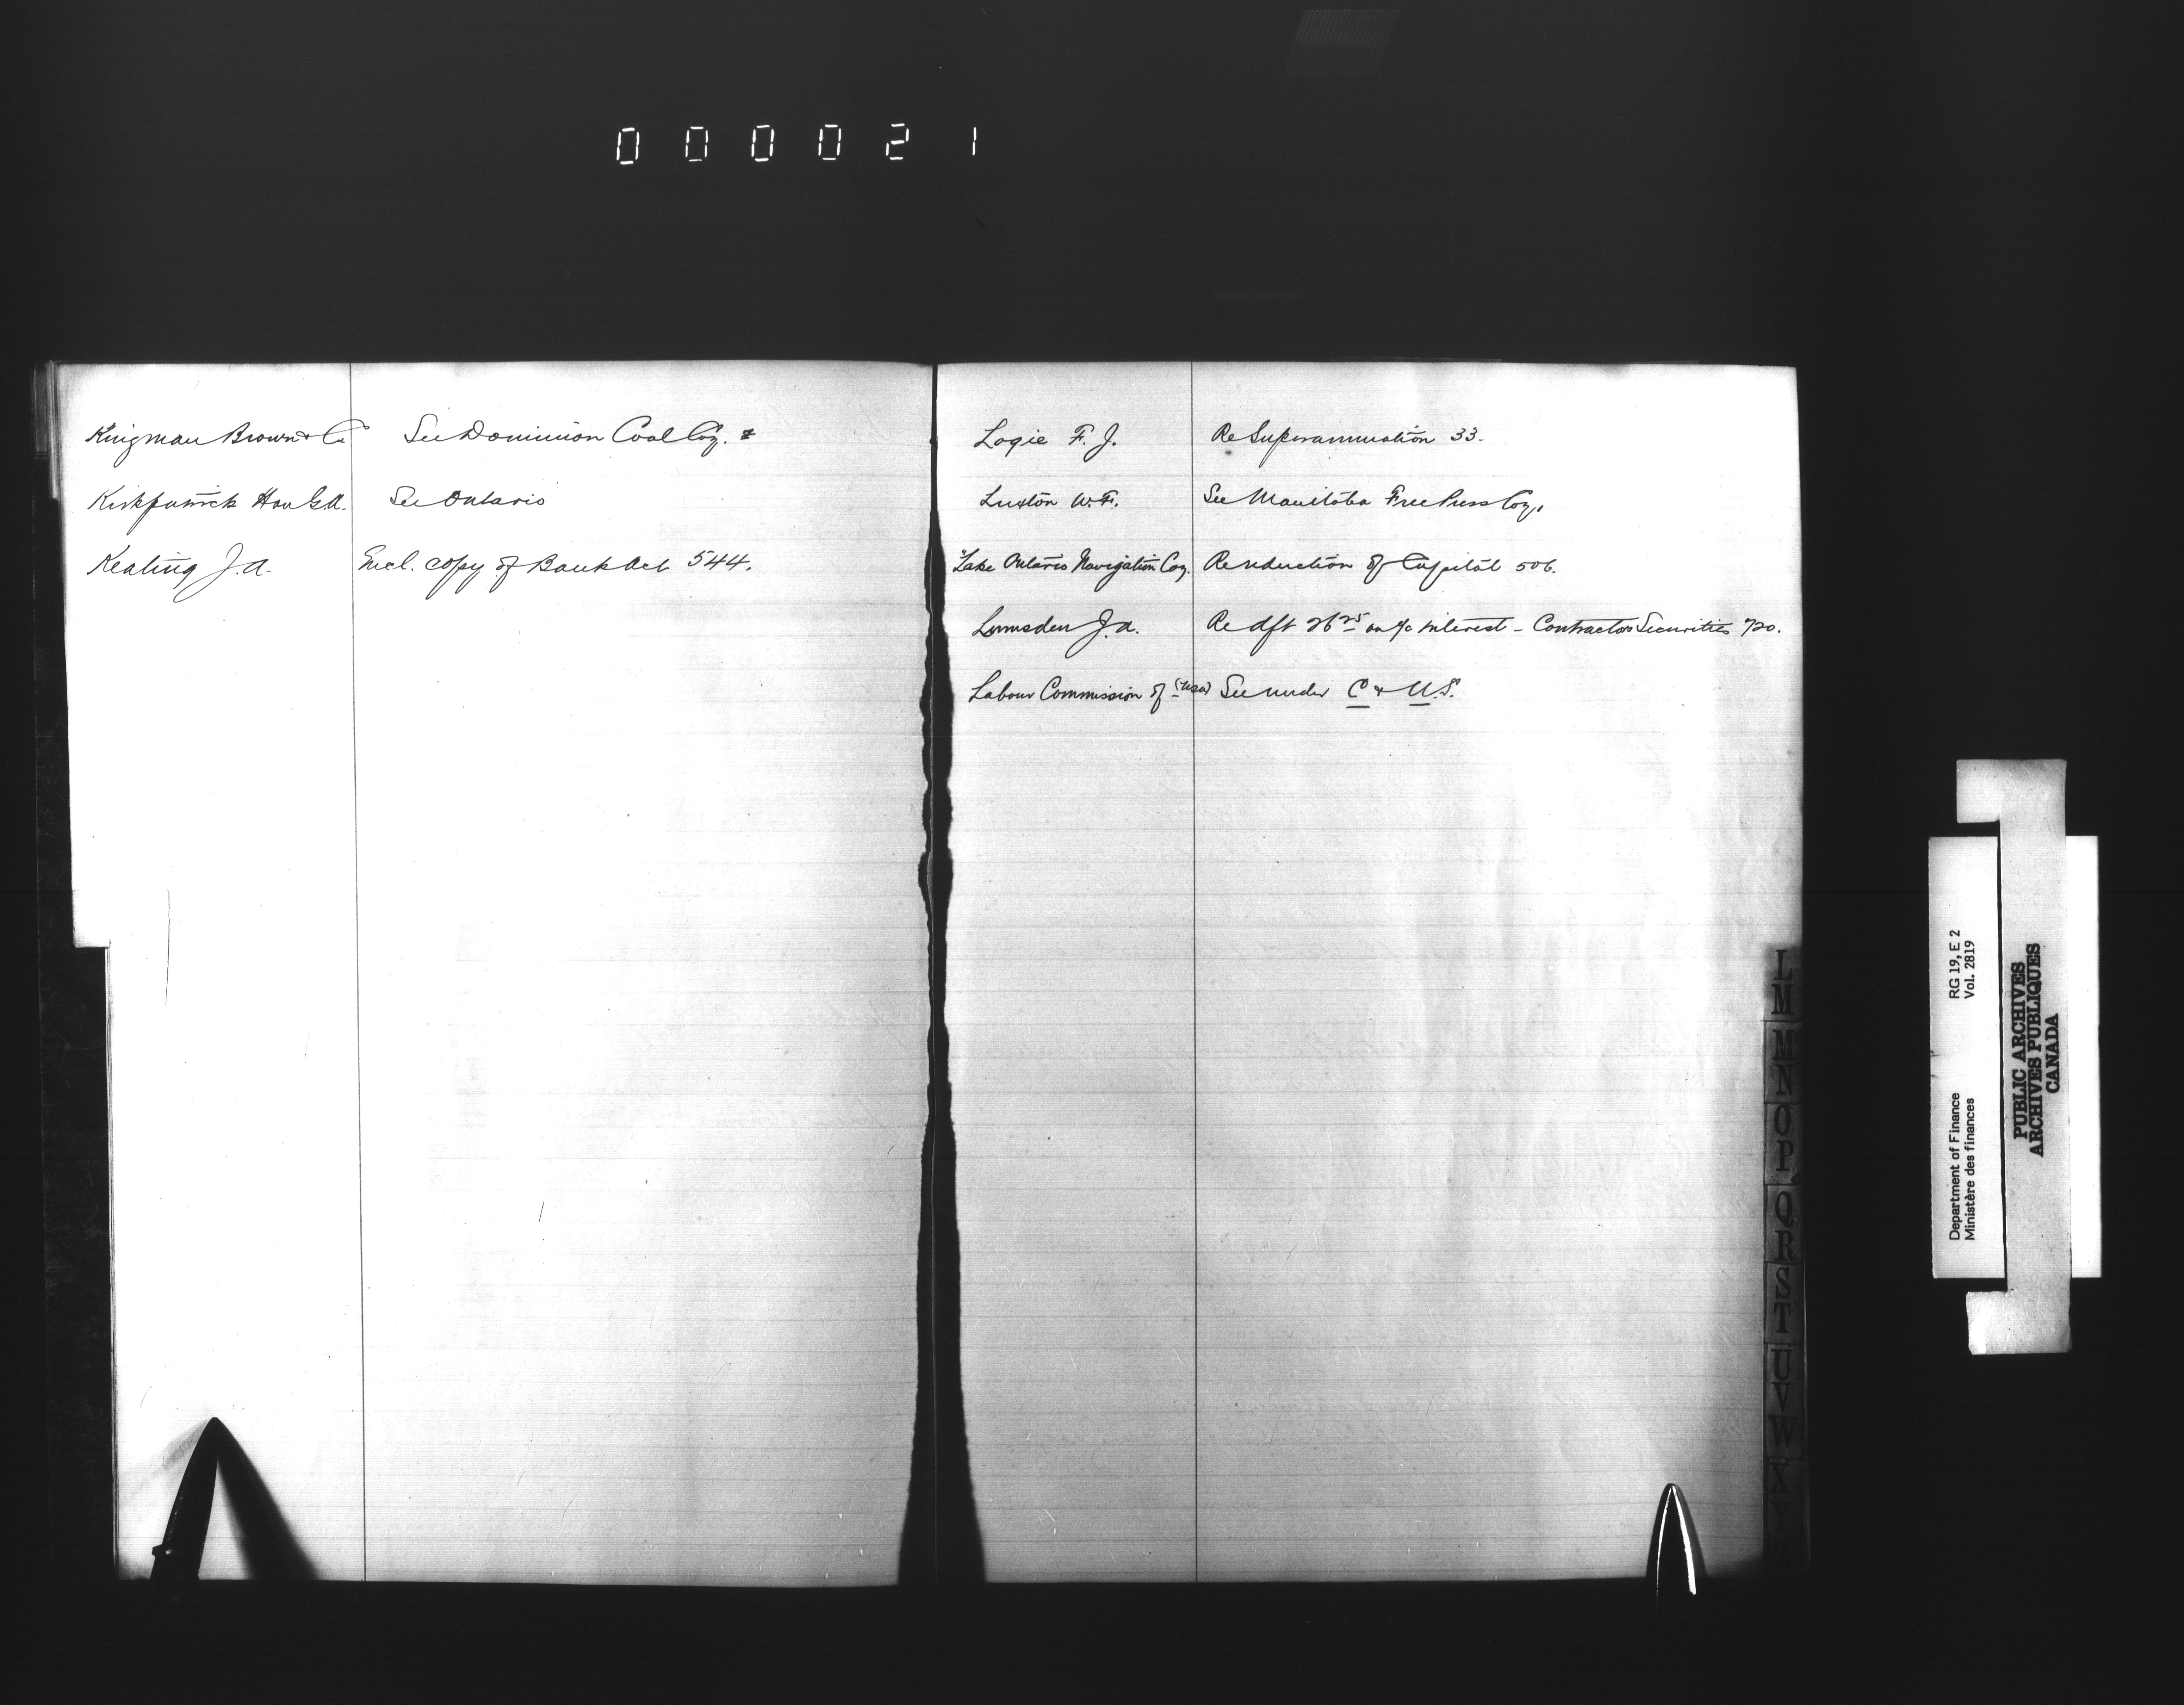 000021
Kingman Brown & Co See Dominion Coal Coy.
Kirkpatrick Hon G.A. See Ontario
Keating J.A. Encl. copy of Bank Act 544.
Logie F. J. Re Superannuation 33.
Luxton W.F. See Manitoba Free Press Coy.
"Lake Ontario Navigation Coy. Re reduction of Capital 506.
Lumsden J.A. Re dft 26 25 on a/c interest - Contractors Securities 720.
Labour Commission of (USA) See under C & U.S.
L
M
M
N
O
P
Q
R
S
T
U
V
W
X
Y
Department of Finance RG 19, E 2
Ministère des finances Vol. 2819
PUBLIC ARCHIVES
ARCHIVES PUBLIQUES
CANADA